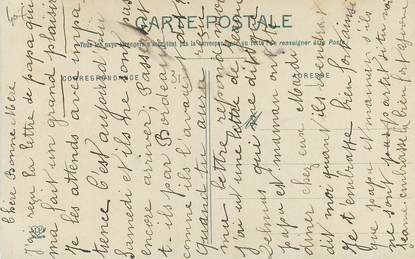 CARTE POSTALE
Tous les pays étrangers n'acceptent pas la correspondance au recto (Se renseigner à la Poste)
CORRESPONDANCE
ADRESSE
Chère Bonne Mère
J'ai reçu la lettre de papa qui
m'a fait un grand plaisir
Je les attends avec impa
tience C'est aujourd'hui
Samedi et ils ne sont pas
encore arrivés; Passent
t-ils par Bordeaux
comme ils l'avaient
Quand tu auras
une lettre réponds moi
J'ai vu une lettre de
Selmus qui me dit que
papa et maman ont
diner chez eux Mardi
dit moi quand ils
Je t'embrasse bien fort ainsi
que papa et maman s'ils
ne sont pas partis
Jeanne embrasse la bien fort